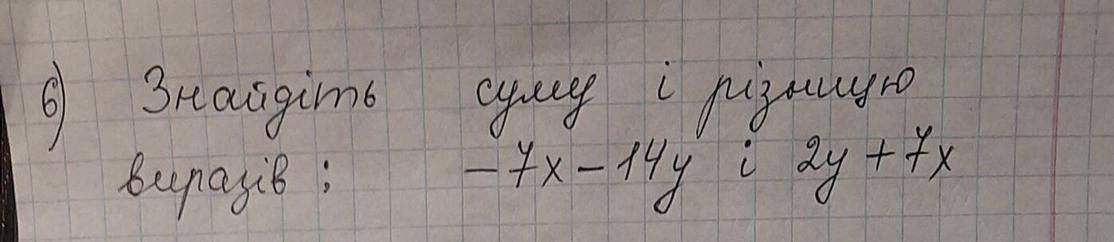 6) Знайдіть суму і різницю
виразів : -7x-14y і 2y+7x